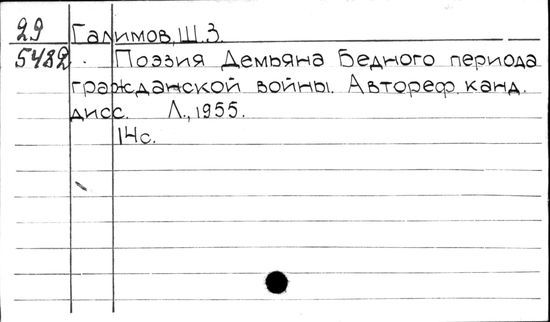 29 Галимов, Ш.З.
5482 . Поэзия Демьяна Бедного периода
гражданской войны. Автореф. канд.
дисс. Л., 1955.
14с.